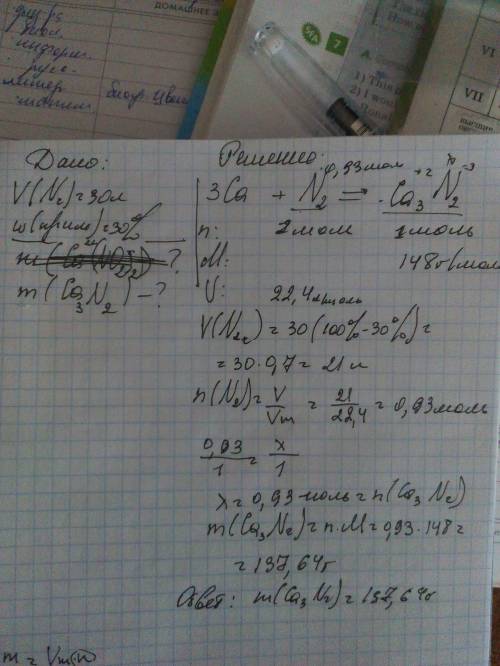 ДОМАШНЕЕ
МА 7
1) This
2) I wou
VI
VII
Дано:
V(N₂)=30л
w(прим)=30%
m(Ca₃N₂)-?
Решение:
0,93мол
3Ca + N₂ = Ca₃N₂
n: 1моль 1моль
M: 148г/мол
V: 22,4л/моль
V(N₂) = 30(100%-30%)=
=30·0,7= 21л
n(N₂)= V/Vm = 21/22,4 = 0,93моль
0,93/1 = x/1
x=0,93 моль = n(Ca₃N₂)
m(Ca₃N₂)=n·M=0,93·148=
=137,64г
Ответ: m(Ca₃N₂)=137,64г